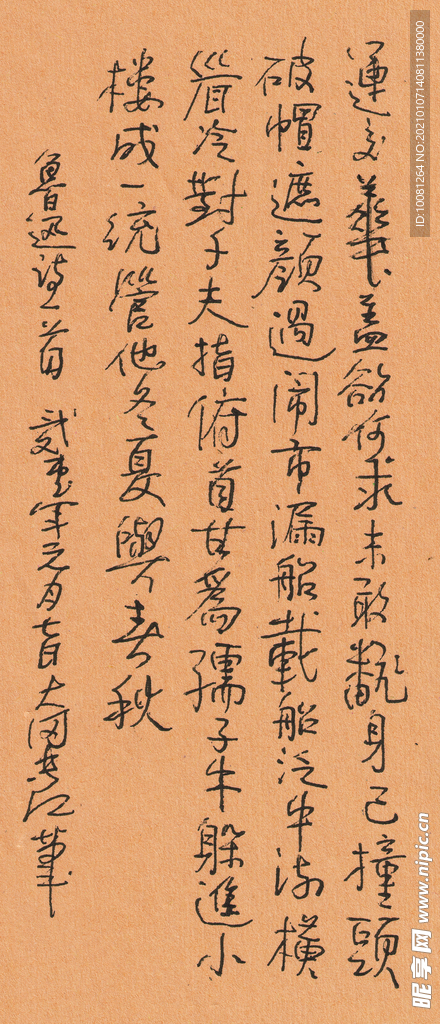 運交華蓋欲何求未敢翻身已撞頭
破帽遮顏過闹市漏船載船泛中流橫
眉冷對千夫指俯首甘爲孺子牛躲進小
楼成一統管他冬夏與春秋
魯迅詩一首 年元月七日大冈 筆
ID:10081264 NO:20210107140811380000
昵享网 www.nipic.cn